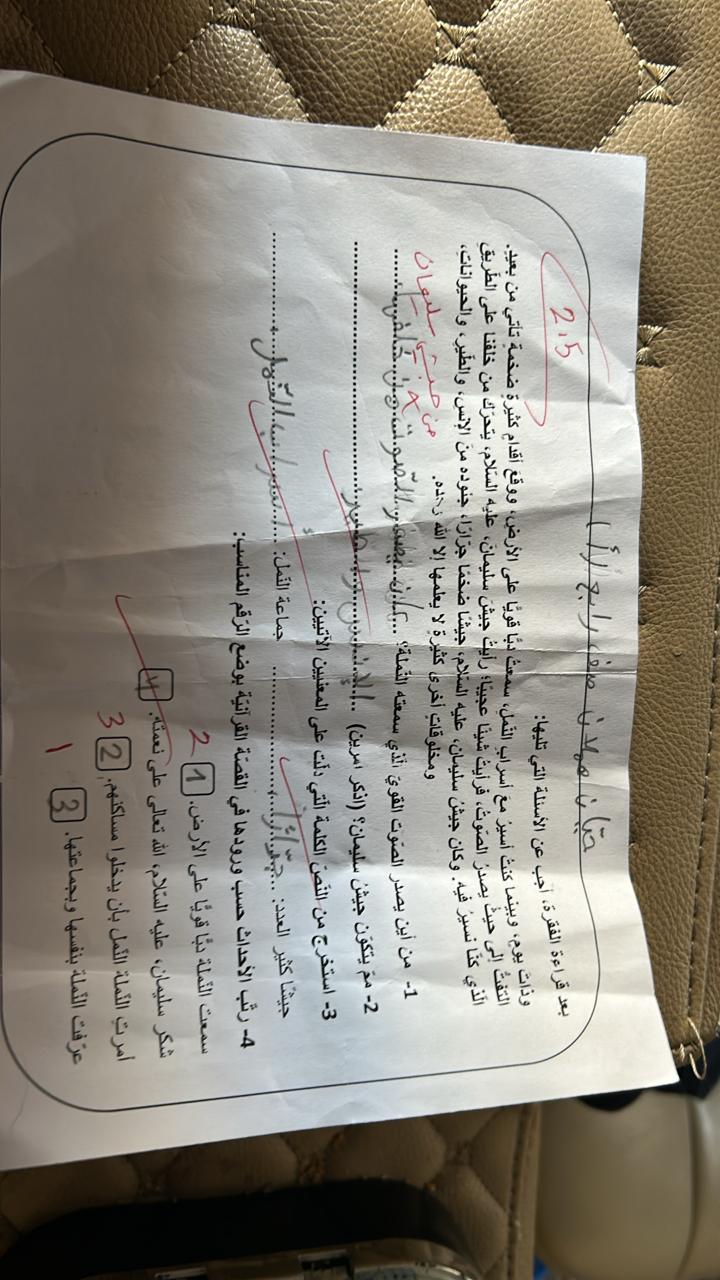 حيّان حمدن صف رابع (أ)
2.5
بعد قراءة الفقرة، أجب عن الأسئلة التي تليها:
وذات يوم، وبينما كنت أسيرُ مع أسراب النمل، سمعتُ دبًّا قويًّا على الأرض، ووقع أقدام كثيرة ضخمة تأتي من بعيد.
التفتُّ إلى حيثُ يصدرُ الصوت، فرأيتُ شيئًا عجيبًا؛ رأيتُ جيشَ سليمان، عليه السّلام، يتحرّك من خلفنا على الطّريق
الّذي كنّا نسيرُ فيه. وكان جيشُ سليمان، عليه السّلام، جيشًا ضخمًا جرّارًا، جنوده من الإنس، والطّير، والحيوانات،
ومخلوقات أخرى كثيرة لا يعلمها إلا الله وحده.
1- من أين يصدر الصّوت القويّ الّذي سمعته النّملة؟ كان يصدر الصّوت من خلفها
من جيش سليمان
2- ممّ يتكوّن جيش سليمان؟ (اذكر أمرين) الإنس والطير
3- استخرج من النّصّ الكلمة الّتي دلّت على المعنيين الآتيين:
جيشًا كثير العدد: جرّارًا جماعة النّمل: أسراب النّمل
4- رتّب الأحداث حسب ورودها في القصّة القرآنيّة بوضع الرّقم المناسب:
سمعت النّملة دبًّا قويًّا على الأرض. 1 2
شكر سليمان، عليه السّلام، الله تعالى على نعمته. 4
أمرت النّملة النّمل بأن يدخلوا مساكنهم. 2 3
عرّفت النّملة بنفسها وبجماعتها. 3 1